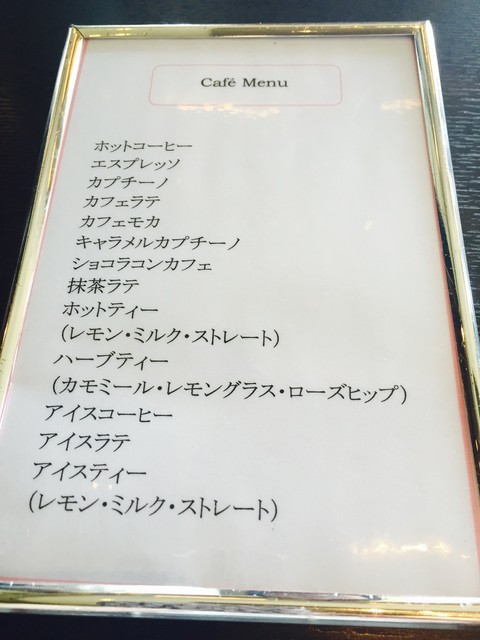 Café Menu
ホットコーヒー
エスプレッソ
カプチーノ
カフェラテ
カフェモカ
キャラメルカプチーノ
ショコラコンカフェ
抹茶ラテ
ホットティー
(レモン・ミルク・ストレート)
ハーブティー
(カモミール・レモングラス・ローズヒップ)
アイスコーヒー
アイスラテ
アイスティー
(レモン・ミルク・ストレート)